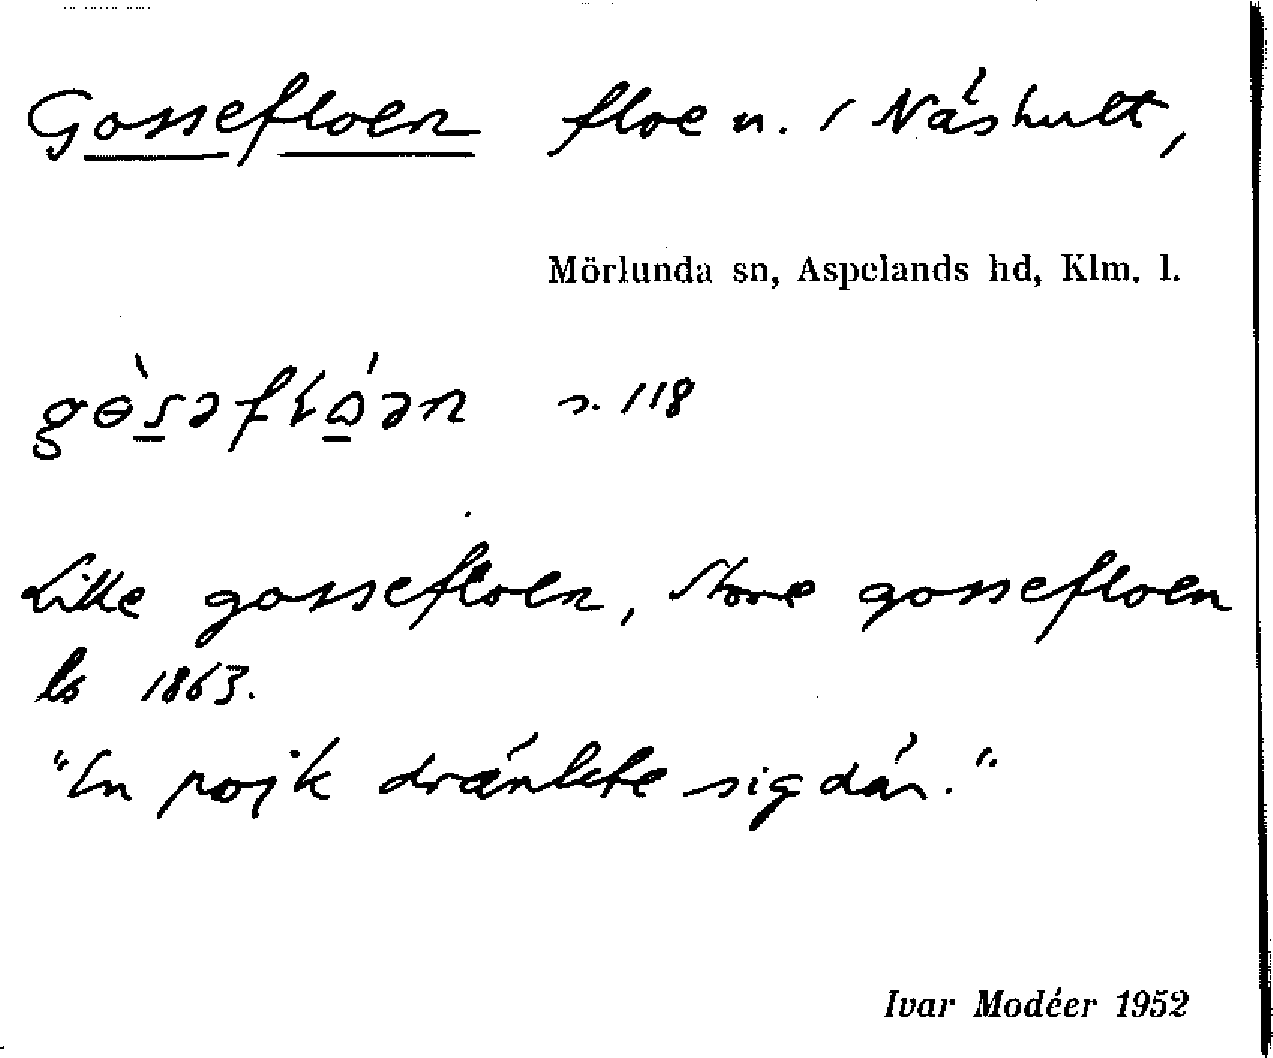 Gossefloen floe n. i Näshult,
Mörlunda sn, Aspelands hd, Klm. l.
s. 118
Lille gossefloen, Store gossefloen
ls 1863.
"En pojk dränkte sig där."
Ivar Modéer 1952